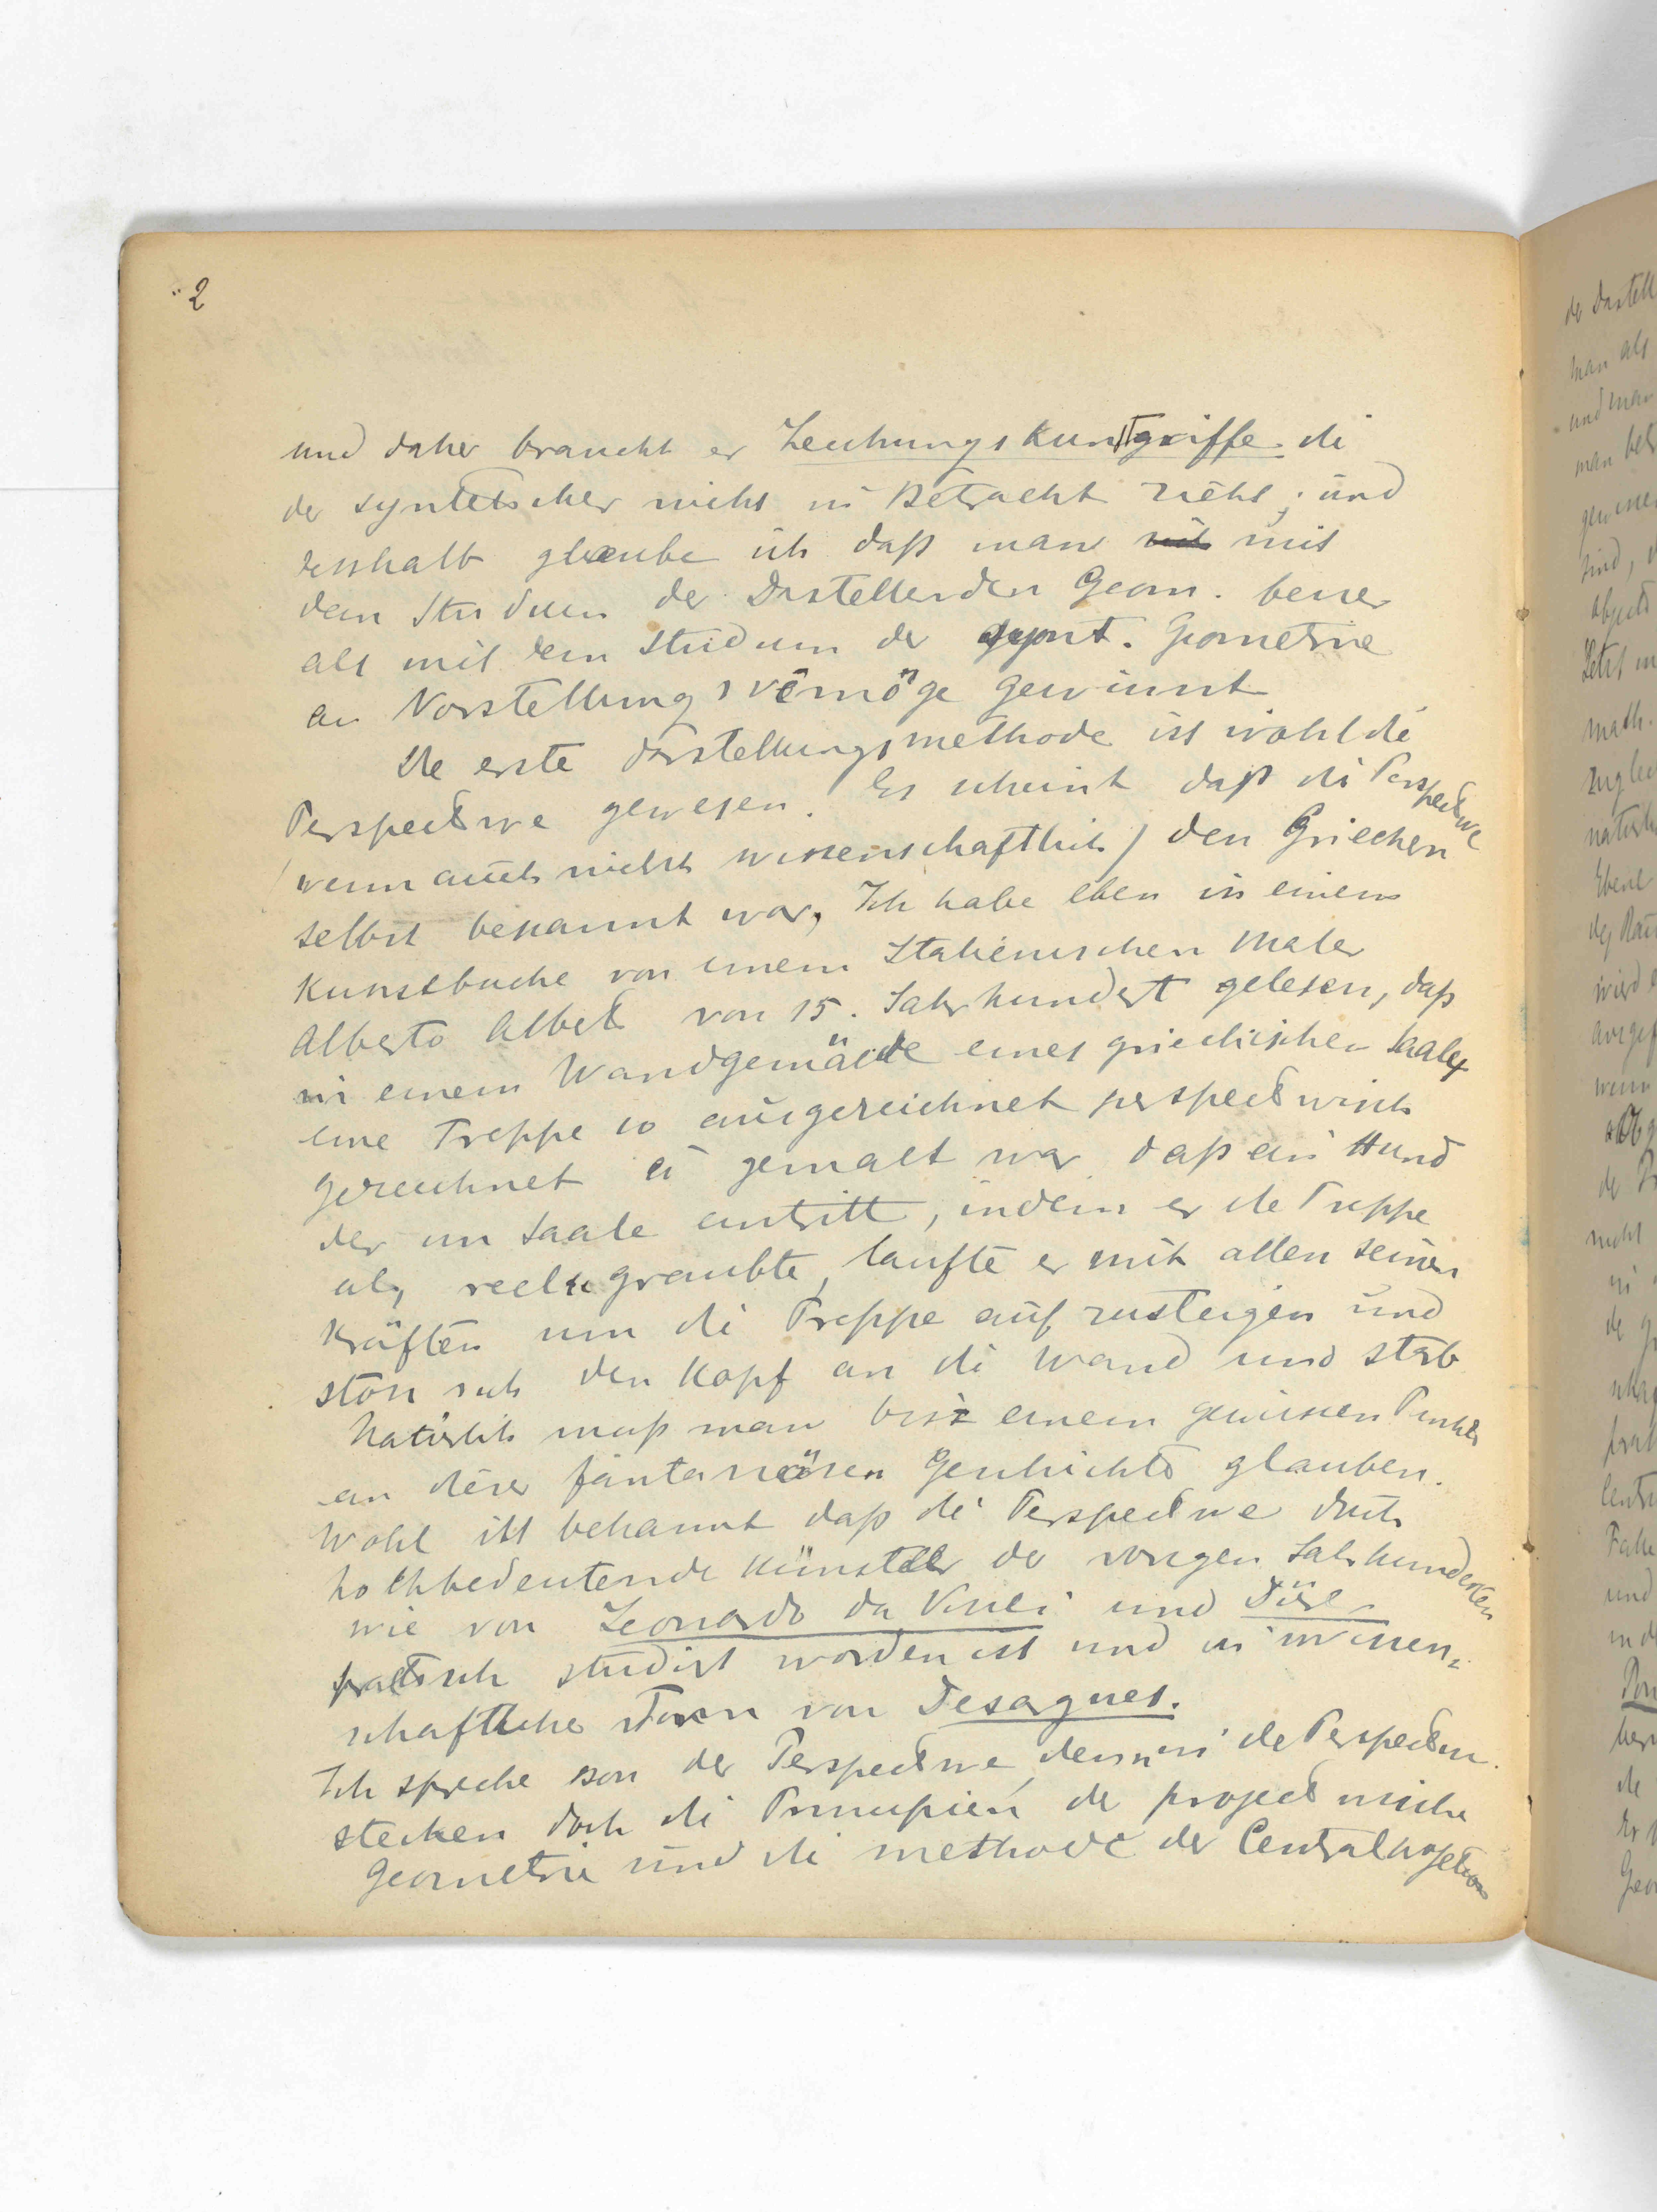 2
und daher braucht er Zeichnungskunstgriffe die
der syntetischer nicht in Betracht zieht; und
desshalb glaube ich daß man mit
dem Studium der Darstellenden Geom. besser
als mit dem Studium der synt. Geometrie
an Vorstellungsvermöge gewinnt
Die erste Darstellungsmethode ist wohl die
Perspective gewesen. Es scheint daß die Perspective
(wenn auch nicht wissenschaftlich) den Griechen
selbst bekannt war, Ich habe eben in einem
Kunstbuche von einem Italienischen Maler
Alberto Alberti von 15. Jahrhundert gelesen, daß
in einem Wandgemälde eines griechischen Saales
eine Treppe so ausgezeichnet perspectivisch
gezeichnet u gemalt war daß ein Hund
der im Saale eintritt, indem er die Treppe
als reell graubte, laufte er mit allen seinen
Kräften um die Treppe auf zusteigen und
stoss sich den Kopf an die Wand und starb
Natürlich muß man bis z einem gewissen Punkte
an dieser fantasiösen Geschichte glauben.
Wohl ist bekannt daß die Perspective durch
hochbedeutende Künstler der vorigen Jahrhunderten
wie von Leonardo da Vinci und Dürer
practisch studirt worden ist und in wissen-
schaftlicher Form von Desargues.
Ich spreche von der Perspective, denn in die Perspective
stecken doch die Principien der projectivische
Geometrie und die methode der Centralprojection